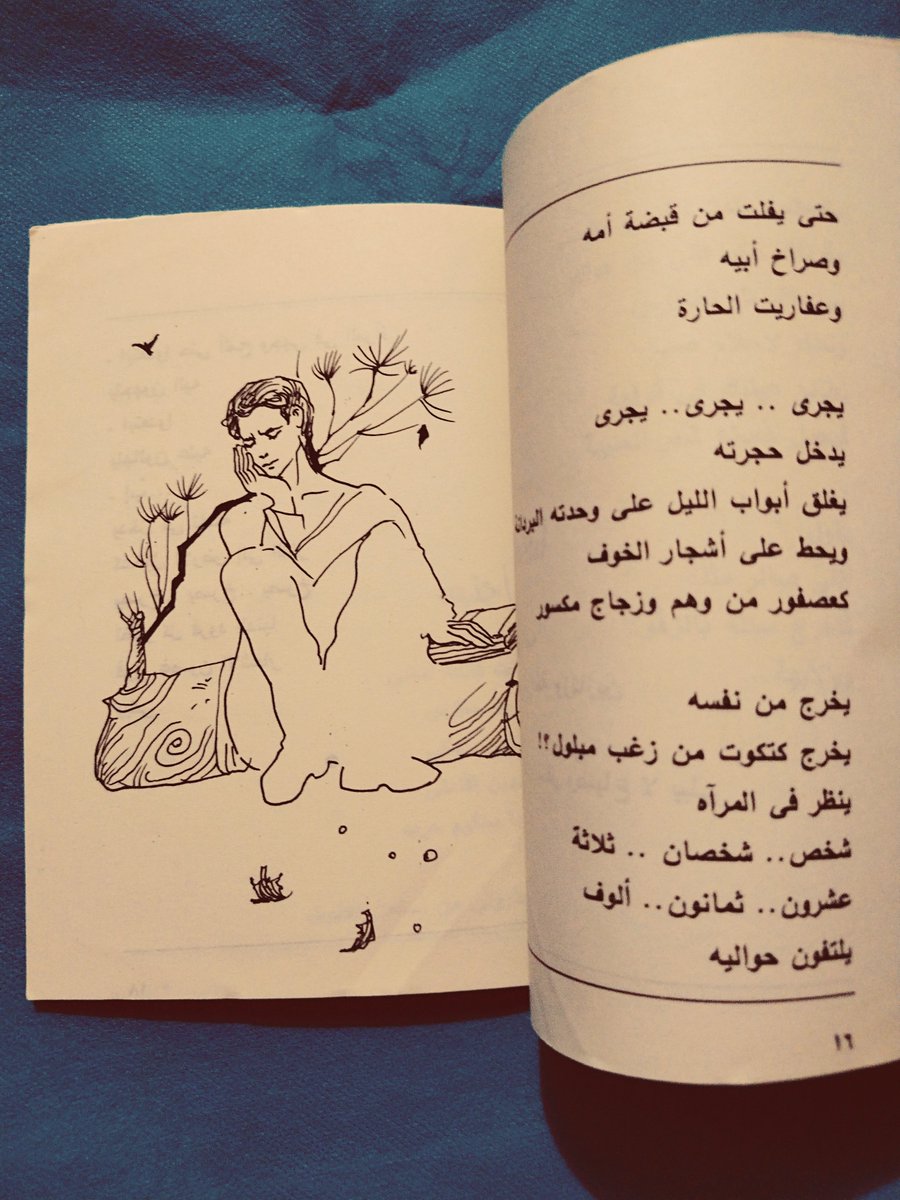 حتى يفلت من قبضة أمه
وصراخ أبيه
وعفاريت الحارة
يجرى .. يجرى.. يجرى
يدخل حجرته
يغلق أبواب الليل على وحدته البردانة
ويحط على أشجار الخوف
كعصفور من وهم وزجاج مكسور
يخرج من نفسه
يخرج كتكوت من زغب مبلول؟!
ينظر فى المرآه
شخص.. شخصان .. ثلاثة
عشرون.. ثمانون.. ألوف
يلتفون حواليه
١٦